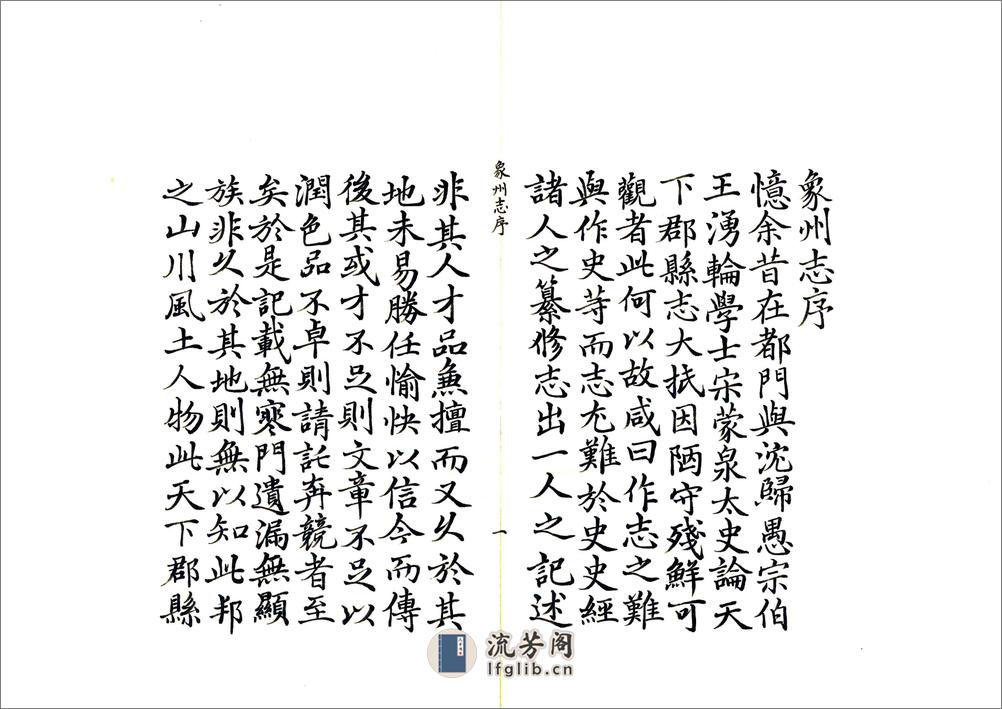 象州志序
憶余昔在都門與沈歸愚宗伯
王湧輪學士宋蒙泉太史論天
下郡縣志大抵因陋守殘鮮可
觀者此何以故咸曰作志之難
與作史等而志尤難於史史經
諸人之纂修志出一人之記述
象州志序
一
非其人才品兼擅而又久於其
地未易勝任愉快以信今而傳
後其或才不足則文章不足以
潤色品不卓則請託奔競者至
矣於是記載無寒門遺漏無顯
族非久於其地則無以知此邦
之山川風土人物此天下郡縣
流芳阁
lfglib.cn